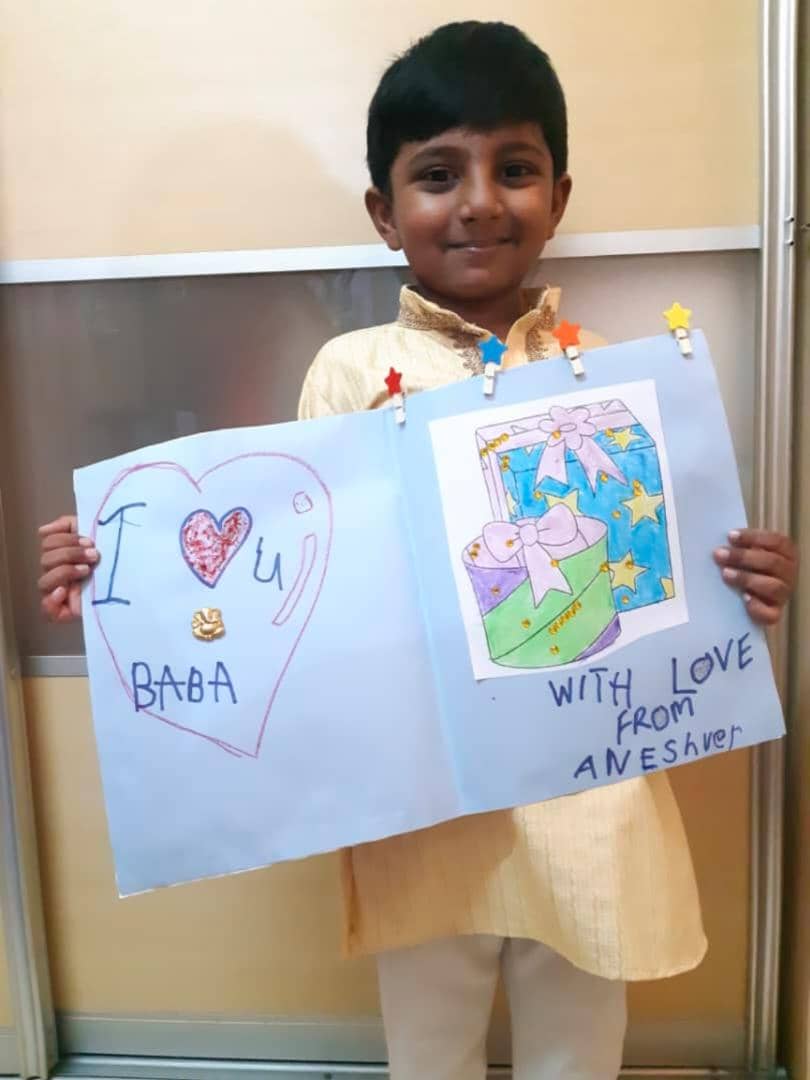 I ❤ u
BABA
WITH LOVE
FROM
ANEShver